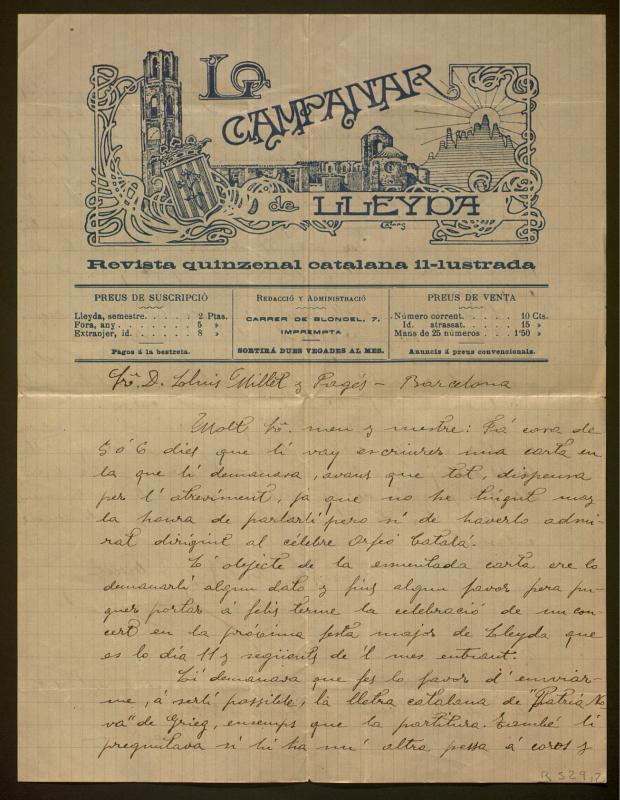 LO
CAMPANAR
de LLEYDA
Revista quinzenal catalana il-lustrada
PREUS DE SUSCRIPCIÓ
Lleyda, semestre. . . . . . 2 Ptas.
Fora, any . . . . . . . . 5 »
Extranjer, id. . . . . . . . 8 »
Pagos á la bestreta.
REDACCIÓ Y ADMINISTRACIÓ
CARRER DE BLONDEL, 7,
IMPREMPTA
SORTIRÁ DUES VEGADES AL MES.
PREUS DE VENTA
Número corrent. . . . . . 10 Cts.
Id. atrassat. . . . . . 15 »
Mans de 25 números . . . 1'50 »
Anuncis á preus convencionals.
Sr. D. Lluis Millet y Pagés – Barcelona
Molt Sr. meu y mestre: Fá cosa de
5 ó 6 dies que li vay escriurer una carta en
la que li demanava, avans que tot, dispensa
per l'atreviment, ja que no he tingut may
la honra de parlarli pero sí de haverlo admi-
rat dirigint al célebre Orfeó Catalá.
L'objecte de la ementada carta ere lo
demanarli algun dato y fins algun favor pera pu-
guer portar á felis terme la celebració de un con-
cert en la próxima festa major de Lleyda que
es lo dia 11 y següents de'l mes entrant.
Li demanava que fes lo favor d'enviar-
me, á serli possible, la lletra catalana de "Patria No-
va" de Grieg, ensemps que la partitura. També li
preguntava si hi ha un' altra pessa á coros y
R 529,2